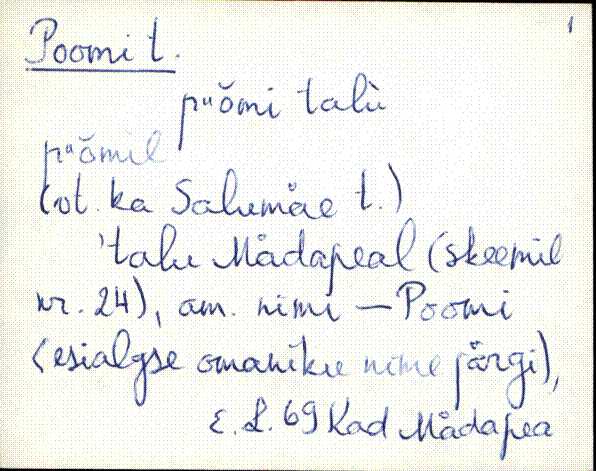 Poomi t.
1
pᵘŏmi talù
pᵘŏmil
(vt. ka Salumäe t.)
'talu Mädapeal (skeemil
nr. 24), am. nimi — Poomi
(esialgse omaniku nime järgi),
E. L. 69 Kad Mädapea